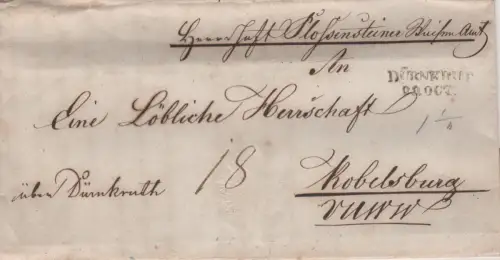 Herrschaft Plossensteiner Waisen Amt
An
DÜRNKRUT
28 OCT.
Eine Löbliche Herrschaft
1 1/4
über Dürnkruth
18
Kobelsburg
VUWW